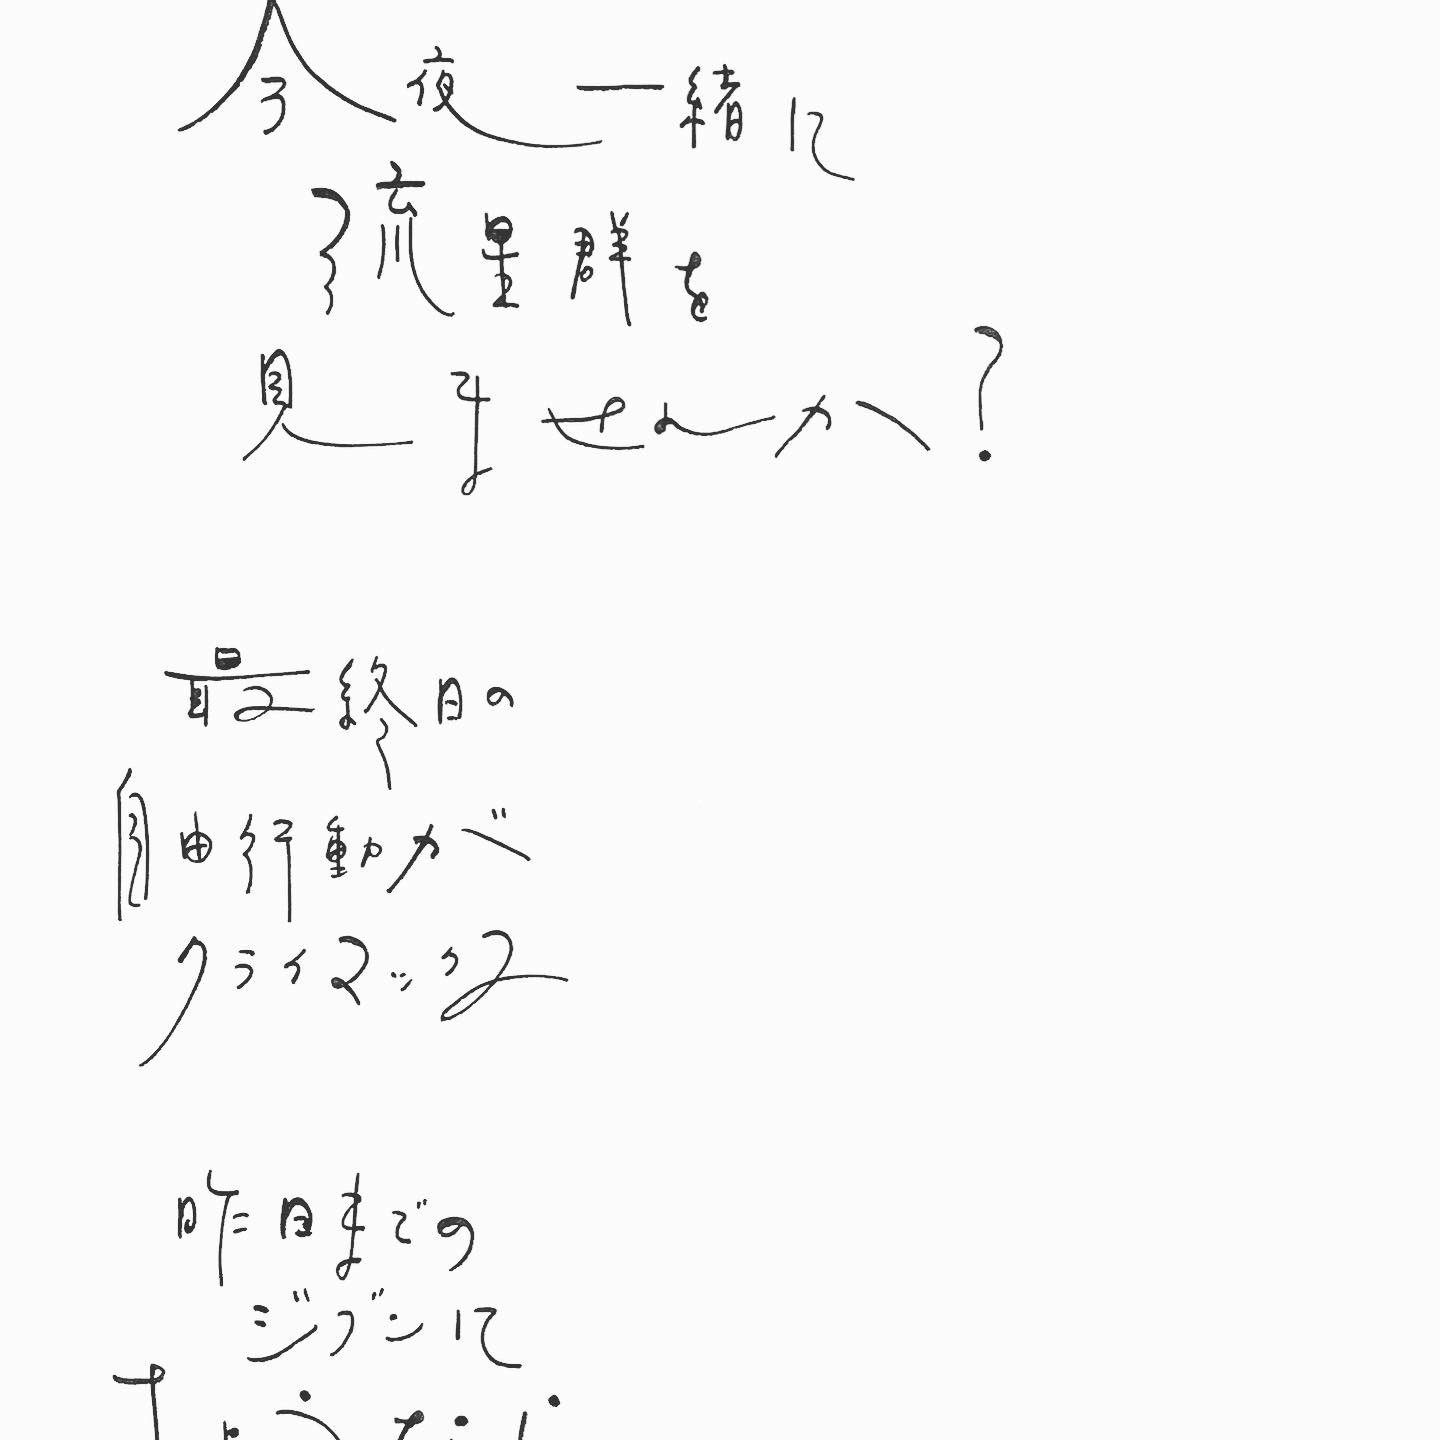 今夜一緒に
流星群を
見ませんか?
最終日の
自由行動が
クライマックス
昨日までの
ジブンに